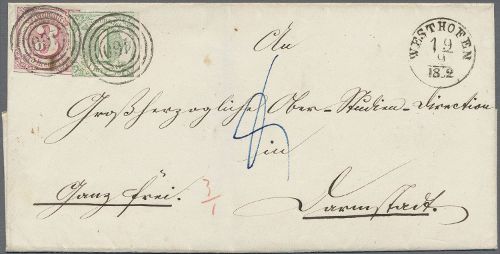 3
WESTHOFEN
19
9
An
Großherzogliche Ober-Studien-Direction
in
Ganz frei.
3/1
Darmstadt.